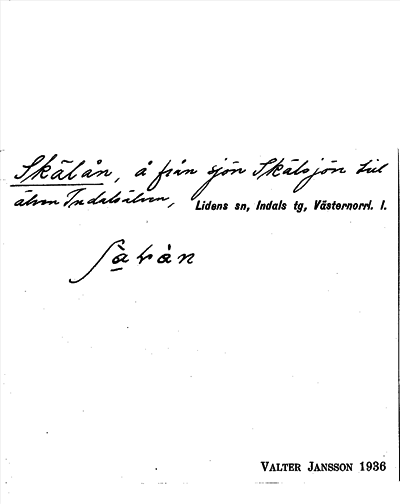 Skälån, å från sjön Skälsjön till
älven Indalsälven, Lidens sn, Indals tg, Västernorrl. l.
VALTER JANSSON 1936